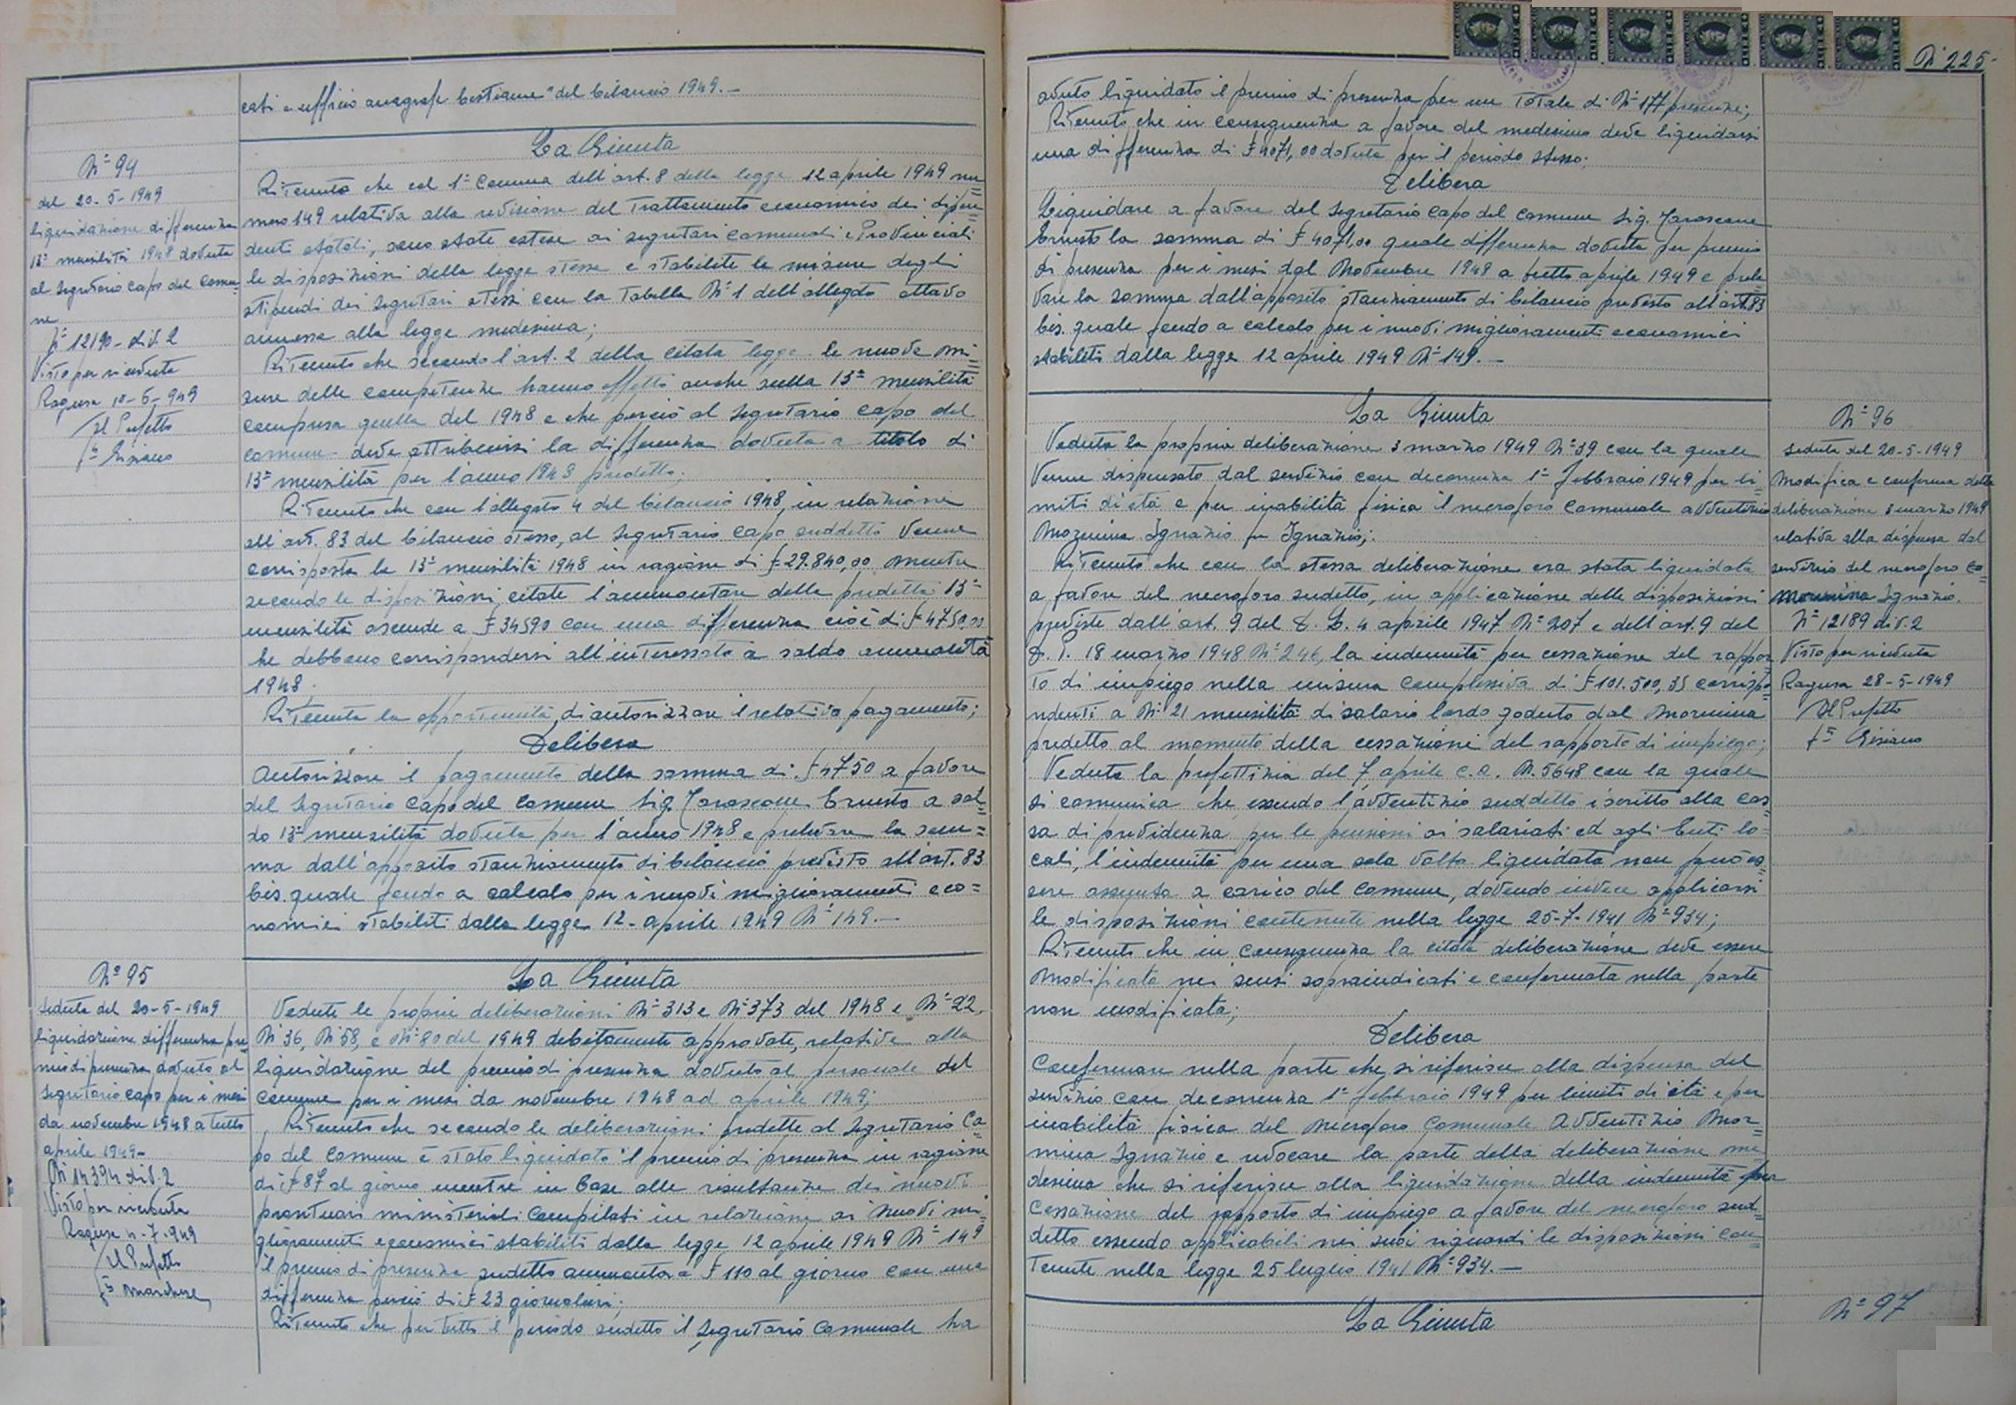 cati e ufficio anagrafe bestiame" del bilancio 1949.—
La Giunta
Ritenuto che col 1° comma dell'art. 8 della legge 12 aprile 1949 nu=
mero 149 relativa alla revisione del trattamento economico dei dipen=
denti statali, sono state estese ai segretari comunali e Provinciali
le disposizioni della legge stessa e stabilite le misure degli
stipendi dei segretari stessi con la tabella N° 1 dell'allegato ottavo
annessa alla legge medesima;
Ritenuto che secondo l'art. 2 della citata legge le nuove mi=
sure delle competenze hanno effetto anche sulla 13ª mensilità
compresa quella del 1948 e che perciò al segretario capo del
comune deve attribuirsi la differenza dovuta a titolo di
13ª mensilità per l'anno 1948 predetto;
Ritenuto che con l'allegato 4 del bilancio 1948, in relazione
all'art. 83 del bilancio stesso, al segretario capo suddetto venne
corrisposta la 13ª mensilità 1948 in ragione di £ 29.840,00 mentre
secondo le disposizioni citate l'ammontare della predetta 13ª
mensilità ascende a £ 34590 con una differenza cioè di £ 4750,00
che debbono corrispondersi all'interessato a saldo annualità
1948.
Ritenuta la opportunità di autorizzare il relativo pagamento;
Delibera
Autorizzare il pagamento della somma di £ 4750 a favore
del segretario capo del comune Sig. Tarascone Ernesto a sal=
do 13ª mensilità dovuta per l'anno 1948 e prelevare la som=
ma dall'apposito stanziamento di bilancio previsto all'art. 83
bis. quale fondo a calcolo per i nuovi miglioramenti eco=
nomici stabiliti dalla legge 12- aprile 1949 N° 149.—
La Giunta
Vedute le proprie deliberazioni N° 313 e N° 373 del 1948 e N° 22,
N° 36, N° 58, e N° 80 del 1949 debitamente approvate, relative alla
liquidazione del premio di presenza dovuto al personale del
comune per i mesi da novembre 1948 ad aprile 1949;
Ritenuto che secondo le deliberazioni predette al Segretario Ca=
po del Comune è stato liquidato il premio di presenza in ragione
di £ 87 al giorno mentre in base alle risultanze dei nuovi
prontuari ministeriali compilati in relazione ai nuovi mi=
glioramenti economici stabiliti dalla legge 12 aprile 1949 N° 149
il premio di presenza sudetto ammonta a £ 110 al giorno con una
differenza perciò di £ 23 giornaliere;
Ritenuto che per tutto il periodo sudetto il Segretario Comunale ha
N° 94
del 20-5-1949
liquidazione differenza
13ª mensilità 1948 dovuta
al segretario capo del comu=
ne
N° 12190 - div. 2
Visto per ricevuta
Ragusa 10-6-949
Il Prefetto
N° 95
Seduta del 20-5-1949
liquidazione differenza pre=
mio di presenza dovuto al
segretario capo per i mesi
da novembre 1948 a tutto
aprile 1949-
N° 14394 div. 2
Visto per ricevuta
Ragusa 4-7-949
Il Prefetto
N° 225
avuto liquidato il premio di presenza per un totale di N° 177 presenze;
Ritenuto che in conseguenza a favore del medesimo deve liquidarsi
una differenza di £ 4071,00 dovuta per il periodo stesso;
Delibera
Liquidare a favore del segretario capo del comune Sig. Tarascone
Ernesto la somma di £ 4071,00 quale differenza dovuta per premio
di presenza per i mesi dal Novembre 1948 a tutto aprile 1949 e prele
vare la somma dall'apposito stanziamento di bilancio previsto all'art. 83
bis. quale fondo a calcolo per i nuovi miglioramenti economici
stabiliti dalla legge 12 aprile 1949 N° 149.—
La Giunta
Veduta la propria deliberazione 3 marzo 1949 N° 39 con la quale
venne dispensato dal servizio con decorrenza 1° febbraio 1949 per li=
miti di età e per inabilità fisica il necroforo comunale avventizio
Mormina Ignazio fu Ignazio;
Ritenuto che con la stessa deliberazione era stata liquidata
a favore del necroforo sudetto, in applicazione delle disposizioni
previste dall'art. 9 del D. L. 4 aprile 1947 N° 207 e dell'art. 9 del
18 marzo 1948 N° 246, la indennità per cessazione del rappor
to di impiego nella misura complessiva di £ 101.500,35 corrispo=
ndenti a N° 21 mensilità di salario lordo goduto dal Mormina
predetto al momento della cessazione del rapporto di impiego;
Veduta la prefettizia del 7 aprile c.a. N. 5648 con la quale
si comunica che essendo l'avventizio suddetto iscritto alla cas
sa di previdenza per le pensioni ai salariati ed agli Enti lo=
cali, l'indennità per una sola volta liquidata non può es=
sere assunta a carico del comune, dovendo invece applicarsi
le disposizioni contenute nella legge 25-7-1941 N° 934;
Ritenuto che in conseguenza la citata deliberazione deve essere
modificata nei sensi sopraindicati e confermata nella parte
non modificata;
Delibera
Confermare nella parte che si riferisce alla dispensa del
servizio con decorrenza 1° febbraio 1949 per limiti di età e per
inabilità fisica del Necroforo Comunale avventizio Mor=
mina Ignazio e revocare la parte della deliberazione me=
desima che si riferisce alla liquidazione della indennità per
cessazione del rapporto di impiego a favore del necroforo sud=
detto essendo applicabili nei suoi riguardi le disposizioni con=
tenute nella legge 25 luglio 1941 N° 934.—
La Giunta
N° 96
Seduta del 20-5-1949
Modifica e conferma della
deliberazione 3 marzo 1949
relativa alla dispensa dal
servizio del necroforo co=
Mormina Ignazio.
N° 12189 div. 2
Visto per ricevuta
Ragusa 28-5-1949
Il Prefetto
N° 97